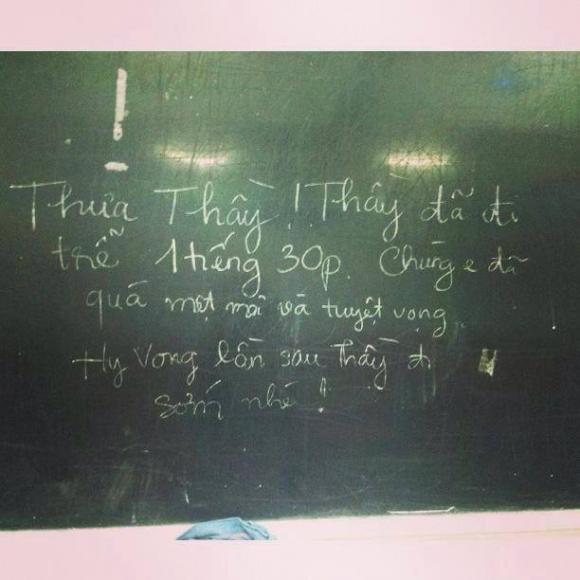 !
Thưa Thầy ! Thầy đã đi
trễ 1 tiếng 30p. Chúng e đã
quá mệt mõi và tuyệt vọng.
Hy Vong lần sau Thầy đi
sớm nhé !